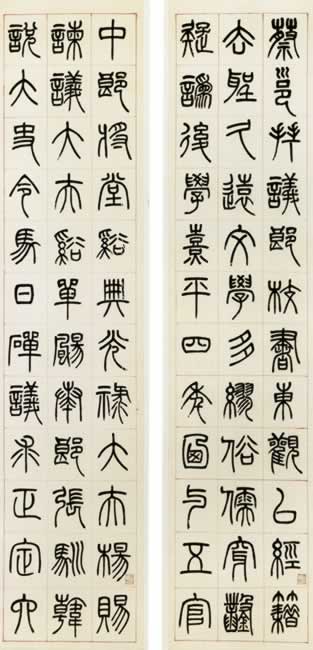 蔡邕拜議郎校書東觀以經籍
去聖久遠文學多繆俗儒穿鑿
疑誤後學熹平四年迺与五官
中郎將堂谿典光祿大夫楊賜
諫議大夫谿單颺奏郎張馴韓
說大史令馬日磾議求正定六